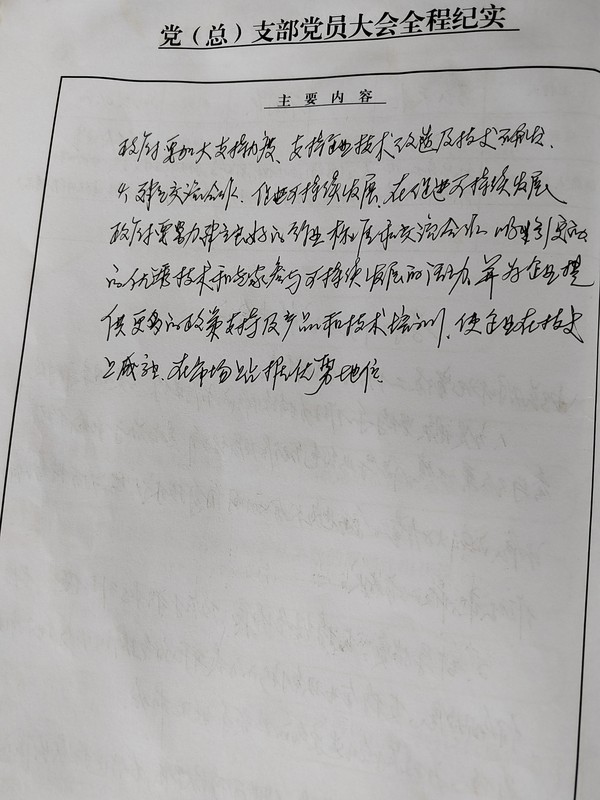 党（总）支部党员大会全程纪实
主要内容
政府要加大支持力度、支持企业技术改造及技术研发、
建立交流会、促进可持续发展、在促进可持续发展
政府要努力建立良好的行业标准和交流会 吸引更多
的优秀技术和专家参与可持续发展的活动 并为企业提
供更多的政策支持及产品和技术培训、使企业在技术
上成熟、在市场上占据优势地位